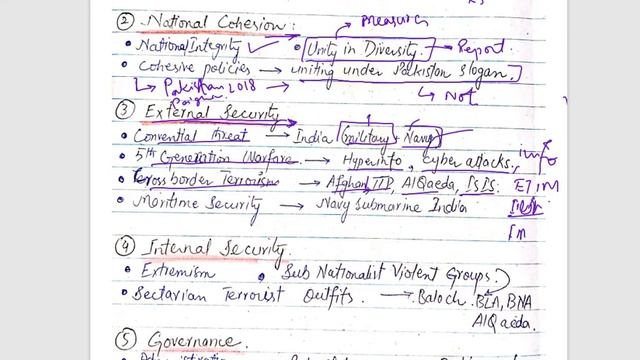 ② National Cohesion: measures
• National Integrity ✓ • Unity in Diversity → Report.
• Cohesive policies → uniting under Pakistan slogan.
↳ Pakistan 2018 → ↳ Not
③ External Security
• Convential threat → India (military + Navy)
• 5th Generation Warfare. → Hyperinfo, cyber attacks, info
• Cross border Terrorism → Afghan TTP, AlQaeda, ISIS. ETIM
• Maritime Security → Navy Submarine India
Im
④ Internal Security.
• Extremism • Sub Nationalist Violent Groups.
• Sectarian Terrorist Outfits. → Baloch. BLA, BNA
AlQaeda.
⑤ Governance.